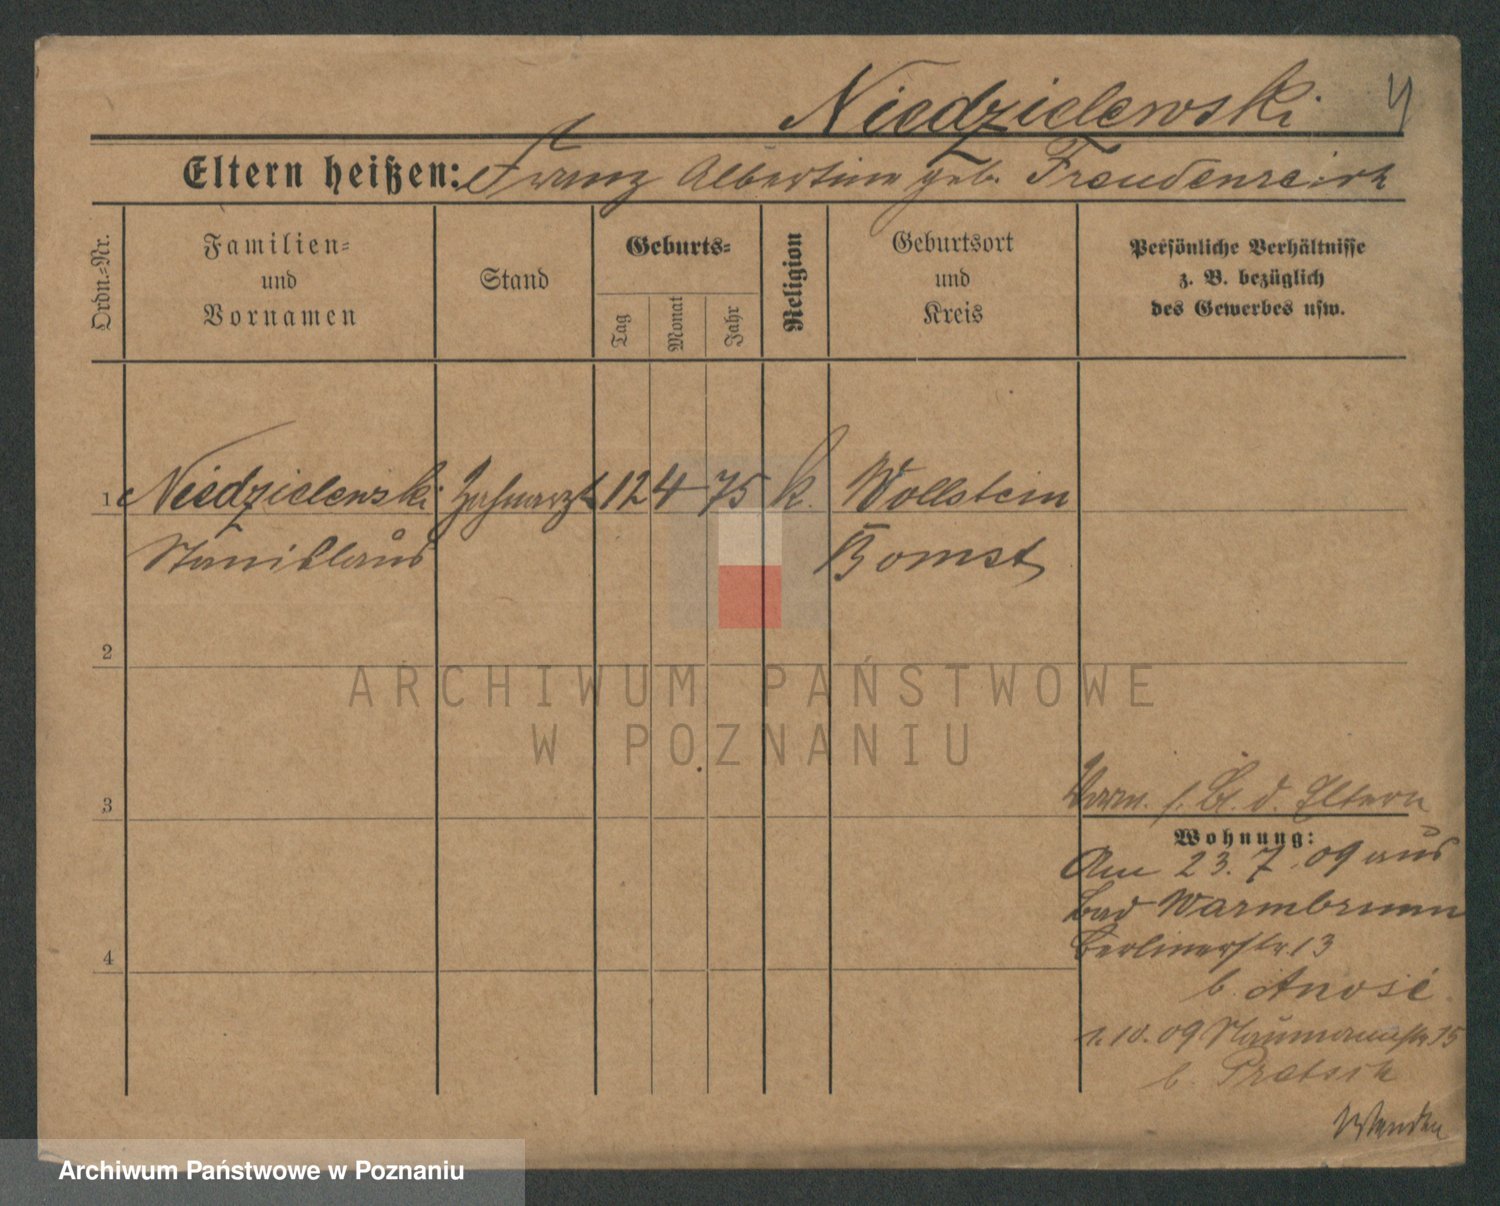 Niedzielewski
Eltern heißen: Franz Albertine geb. Freudenreich
Ordn.-Nr.
Familien-
und
Vornamen
Stand
Geburts-
Tag
Monat
Jahr
Religion
Geburtsort
und
Kreis
Persönliche Verhältnisse
z. B. bezüglich
des Gewerbes usw.
1 Niedzielewski Zahnarzt 12 4 75 k. Wollstein
Stanislaus Bomst
2
ARCHIWUM PAŃSTWOWE
W POZNANIU
3
d. Eltern
Wohnung:
Am 23.7.09 aus
Bad Warmbrunn
Berlinerstr. 13
4
b.
1.10.09 Naumannstr. 15
b.
Wenden
Archiwum Państwowe w Poznaniu